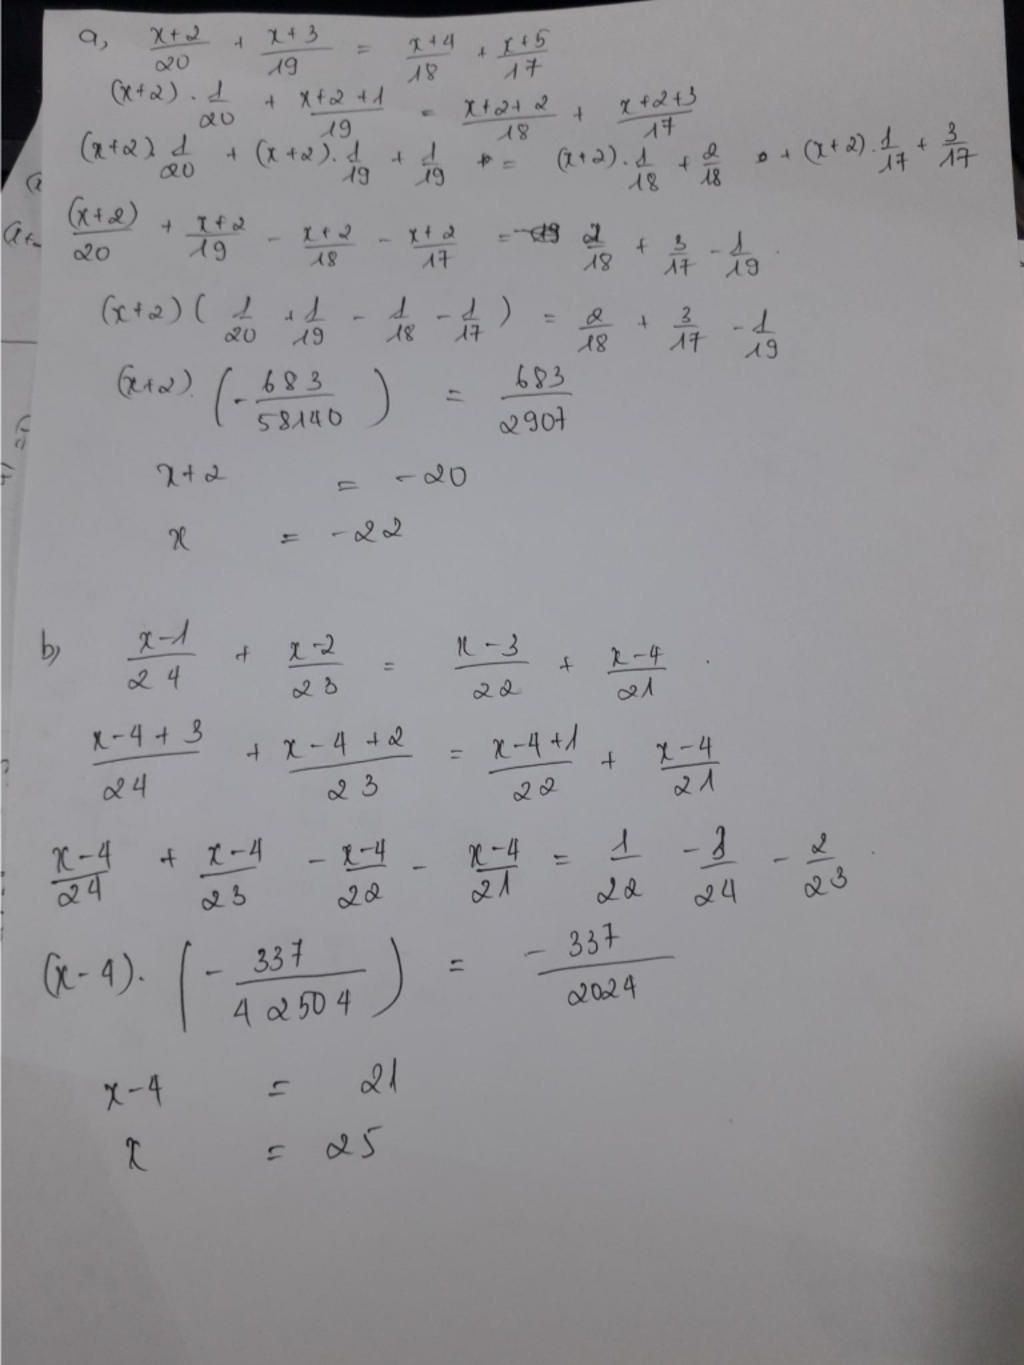 a, (x+2)/20 + (x+3)/19 = (x+4)/18 + (x+5)/17
(x+2) . 1/20 + (x+2+1)/19 = (x+2+2)/18 + (x+2+3)/17
(x+2) . 1/20 + (x+2) . 1/19 + 1/19 = (x+2) . 1/18 + 2/18 + (x+2) . 1/17 + 3/17
(x+2)/20 + (x+2)/19 - (x+2)/18 - (x+2)/17 = 2/18 + 3/17 - 1/19
(x+2) ( 1/20 + 1/19 - 1/18 - 1/17 ) = 2/18 + 3/17 - 1/19
(x+2) . ( - 683/58140 ) = 683/2907
x+2 = -20
x = -22
b, (x-1)/24 + (x-2)/23 = (x-3)/22 + (x-4)/21
(x-4+3)/24 + (x-4+2)/23 = (x-4+1)/22 + (x-4)/21
(x-4)/24 + (x-4)/23 - (x-4)/22 - (x-4)/21 = 1/22 - 3/24 - 2/23
(x-4) . ( - 337/42504 ) = -337/2024
x-4 = 21
x = 25